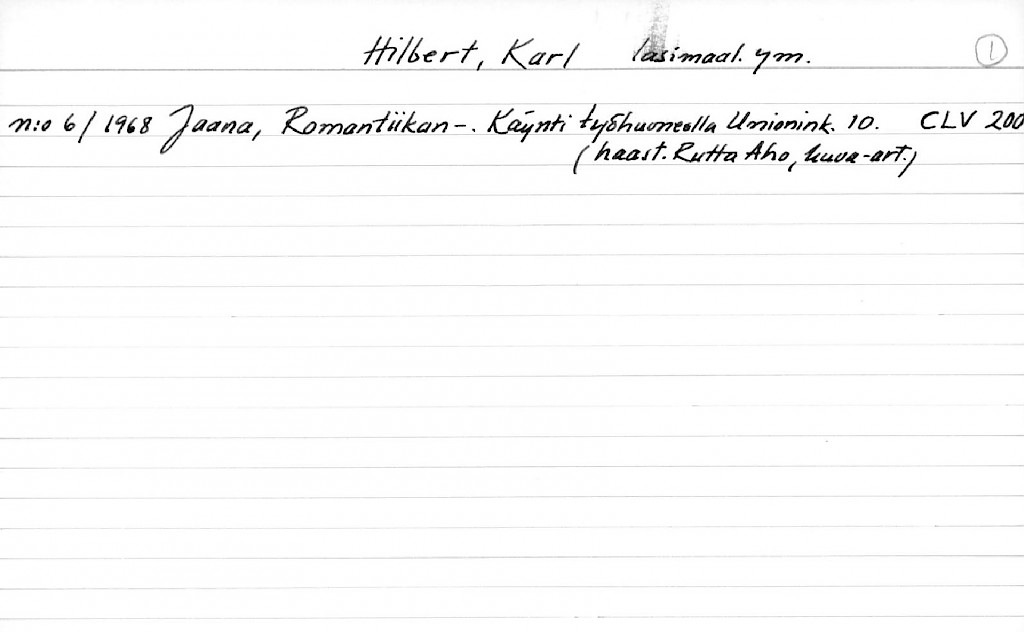 Hilbert, Karl lasimaal. ym. 1
n:o 6/1968 Jaana, Romantiikan-. Käynti työhuoneella Unionink. 10. CLV 200
(haast. Rutta Aho, kuva-art.)